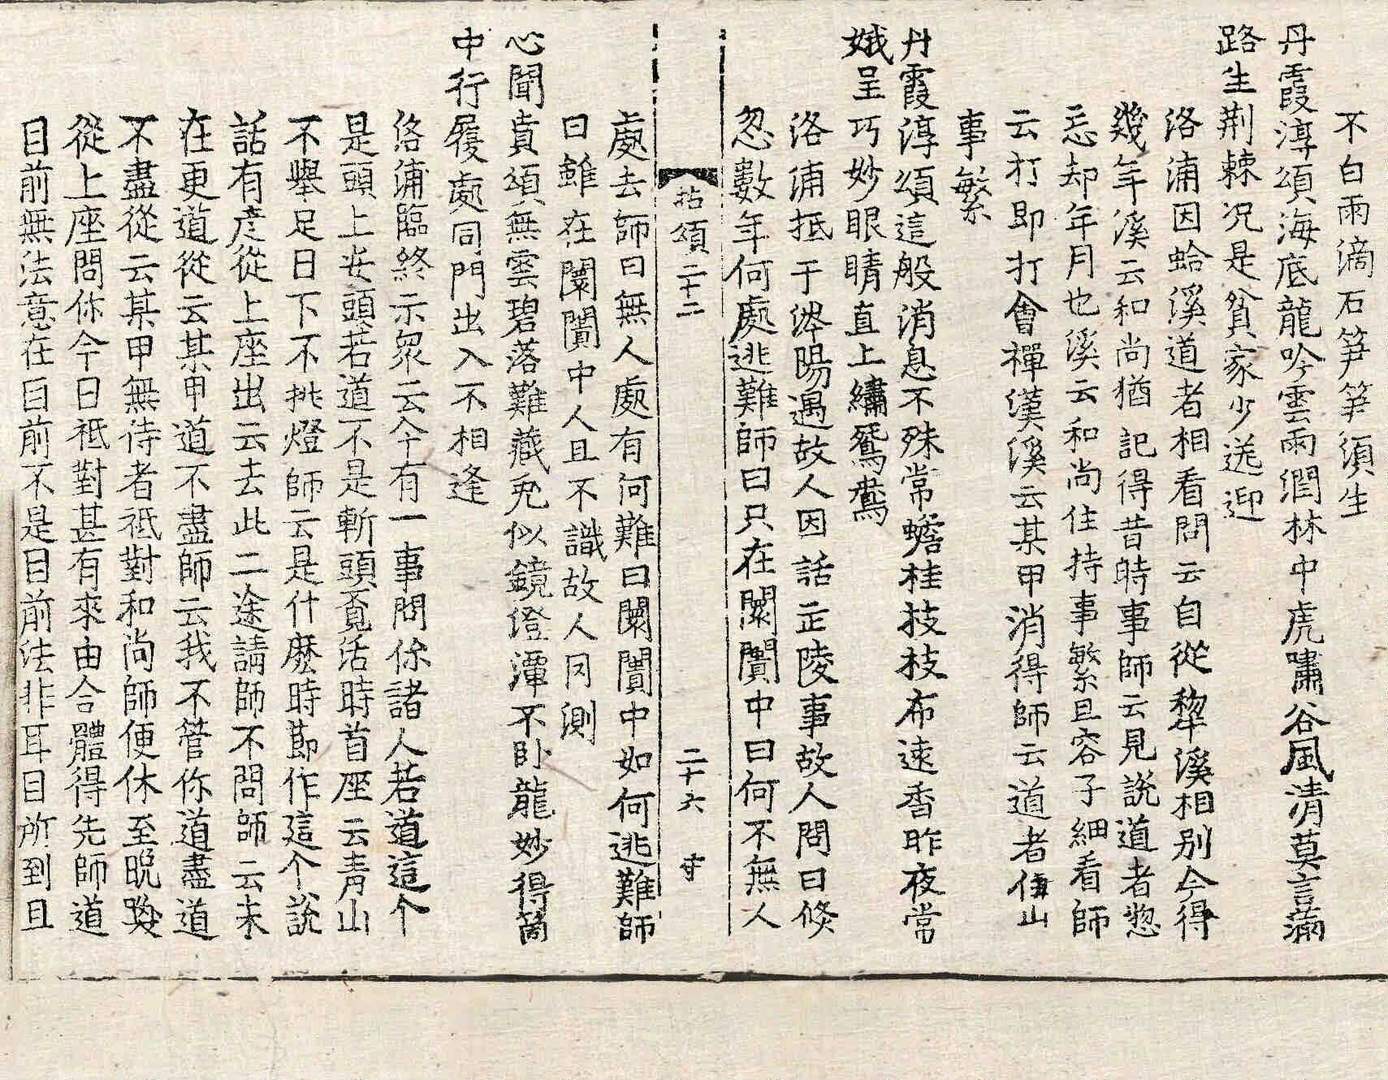 不白雨滴石笋笋須生
丹霞淳頌海底龍吟雲雨潤林中虎嘯谷風清莫言滿
路生荆棘况是貧家少送迎
洛浦因蛤溪道者相看問云自從犂溪相別今得
幾年溪云和尚猶記得昔時事師云見說道者惣
忘却年月也溪云和尚住持事繁且容子細看師
云打即打會禪漢溪云某甲消得師云道者住山
事繁
丹霞淳頌這般消息不殊常蟾桂技枝布速香昨夜常
娥呈巧妙眼睛直上繡鴛鴦
洛浦抵于涔陽遇故人因話正陵事故人問曰倐
忽數年何處逃難師曰只在闤闠中曰何不無人
拈頌二十二 二十六 寸
處去師曰無人處有何難曰闤闠中如何逃難師
曰雖在闤闠中人且不識故人罔測
心聞賁頌無雲碧落難藏兎似鏡澄潭不卧龍妙得箇
中行履處同門出入不相逢
洛浦臨終示衆云今有一事問你諸人若道這个
是頭上安頭若道不是斬頭覔活時首座云青山
不舉足日下不挑燈師云是什麽時莭作這个說
話有彦從上座出云去此二途請師不問師云未
在更道從云某甲道不盡師云我不管你道盡道
不盡從云某甲無待者祗對和尚師便休至晩喚
從上座問你今日祗對甚有來由合體得先師道
目前無法意在目前不是目前法非耳目所到且